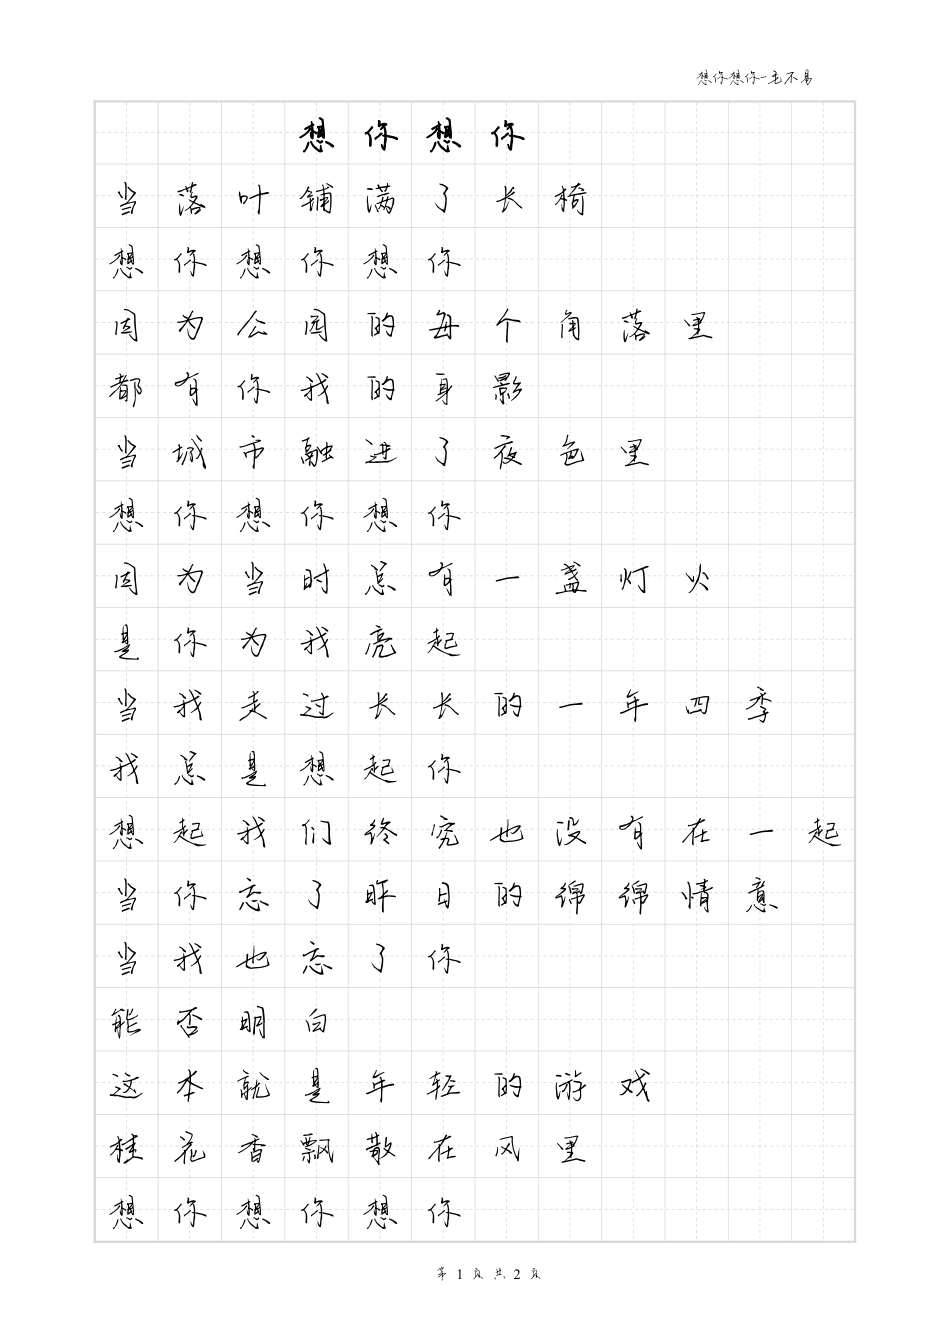 想你想你-毛不易
想你想你
当落叶铺满了长椅
想你想你想你
因为公园的每个角落里
都有你我的身影
当城市融进了夜色里
想你想你想你
因为当时总有一盏灯火
是你为我亮起
当我走过长长的一年四季
我总是想起你
想起我们终究也没有在一起
当你忘了昨日的绵绵情意
当我也忘了你
能否明白
这本就是年轻的游戏
桂花香飘散在风里
想你想你想你
第 1 页 共 2 页